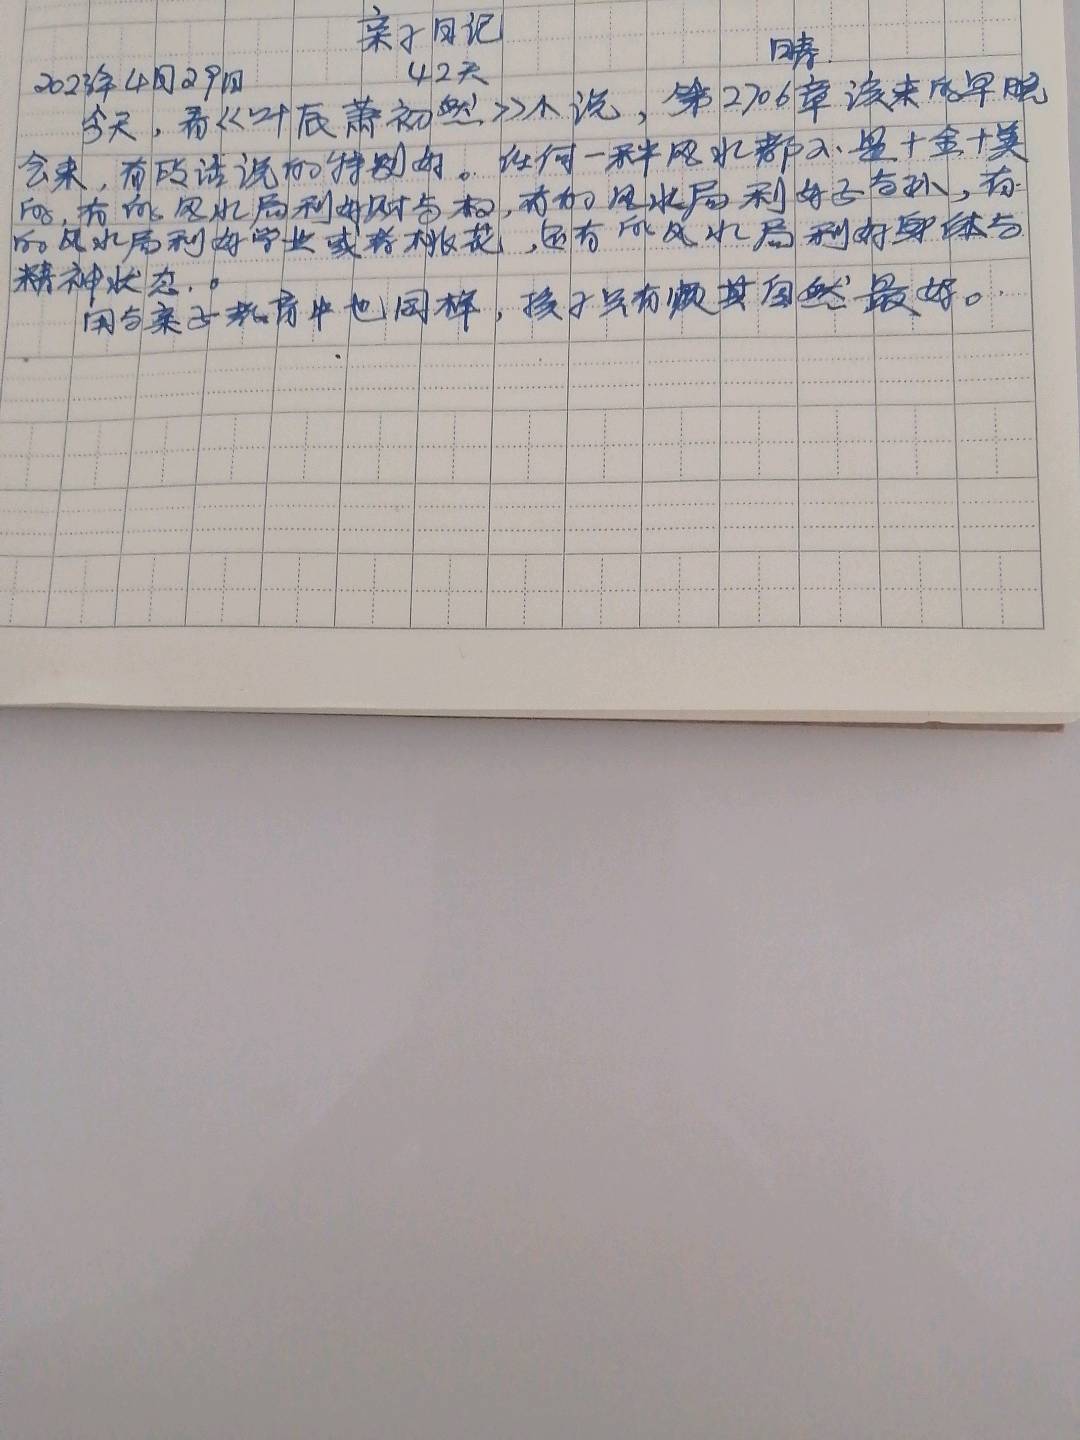 亲子日记
2023年4月29日 42天 晴.
今天,看《叶辰萧初然》小说,第2706章该来的早晚
会来,有段话说的特别好。任何一种风水都不是十全十美
的,有的风水局利好财与权,有的风水局利好子与孙,有
的风水局利好学业或者桃花,还有的风水局利好身体与
精神状态.。
用与亲子教育中也同样,孩子只有顺其自然最好。